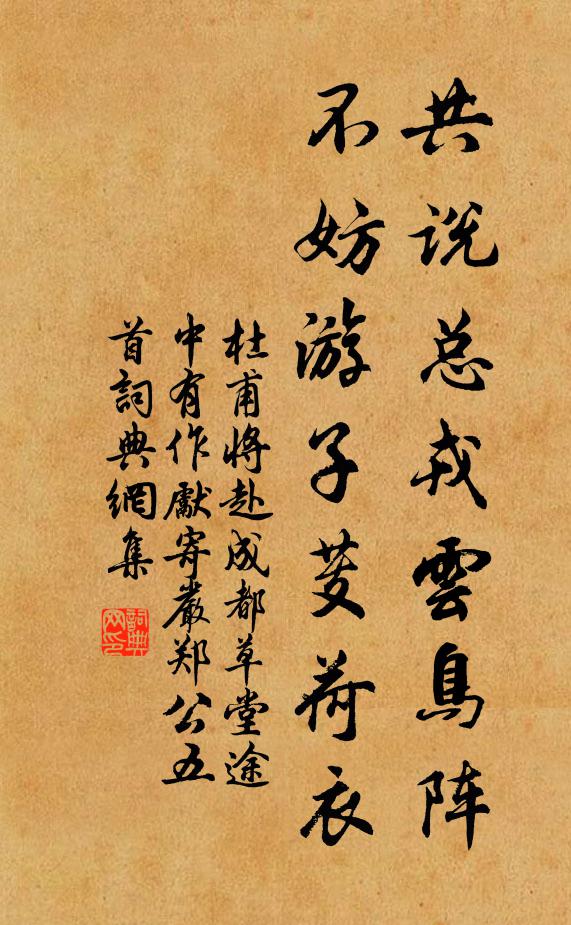 共说总戎雲鳥阵
不妨游子芰荷衣
杜甫將赴成都草堂途
中有作獻寄嚴郑公五
首詞典網集
詞典网印